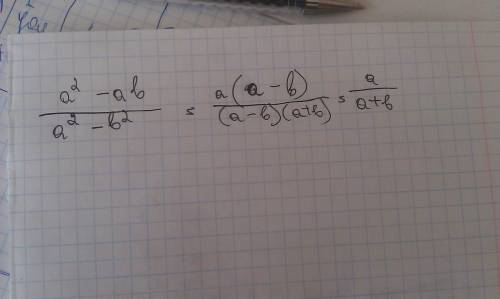 (a² - ab)/(a² - b²) = a(a - b)/((a - b)(a + b)) = a/(a + b)